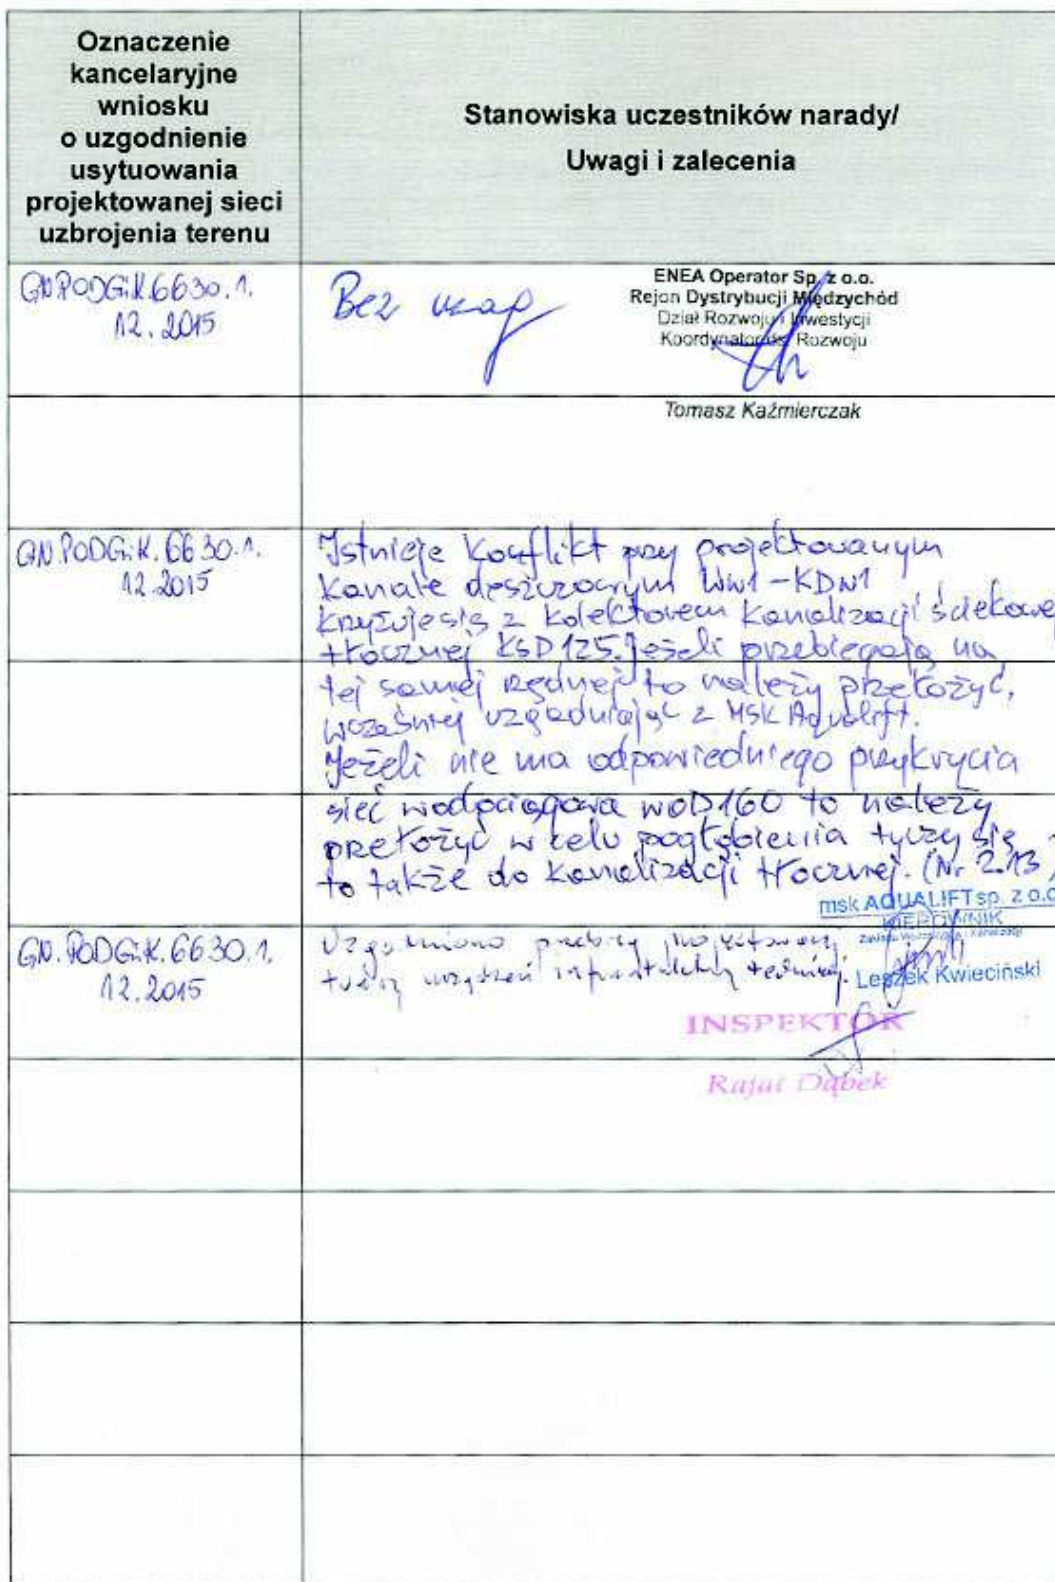 Oznaczenie
kancelaryjne
wniosku
o uzgodnienie
usytuowania
projektowanej sieci
uzbrojenia terenu
Stanowiska uczestników narady/
Uwagi i zalecenia
GN.PODGiK.6630.1.
12.2015
Bez uwag
ENEA Operator Sp. z o.o.
Rejon Dystrybucji Międzychód
Dział Rozwoju i Inwestycji
Koordynator ds. Rozwoju
Tomasz Kaźmierczak
GN.PODGiK.6630.1.
12.2015
Istnieje Konflikt przy projektowanym
Kanale deszczowym Ww1-KDW1
krzyżuje się z kolektorem kanalizacji ściekowej
tłocznej KSD125. Jeżeli przebiegają na
tej samej rzędnej to należy przełożyć,
wcześniej uzgadniając z MSK Aqualift.
Jeżeli nie ma odpowiedniego przykrycia
sieć wodociągowa woD160 to należy
przełożyć w celu pogłębienia tyczy się
to także do kanalizacji tłocznej. (Nr 2.13)
msk AQUALIFT sp. z o.o
KIEROWNIK
Leszek Kwieciński
GN.PODGiK.6630.1.
12.2015
Uzgodniono przebieg projektowanej
urządzeń infrastruktury
INSPEKTOR
Rafał Dąbek